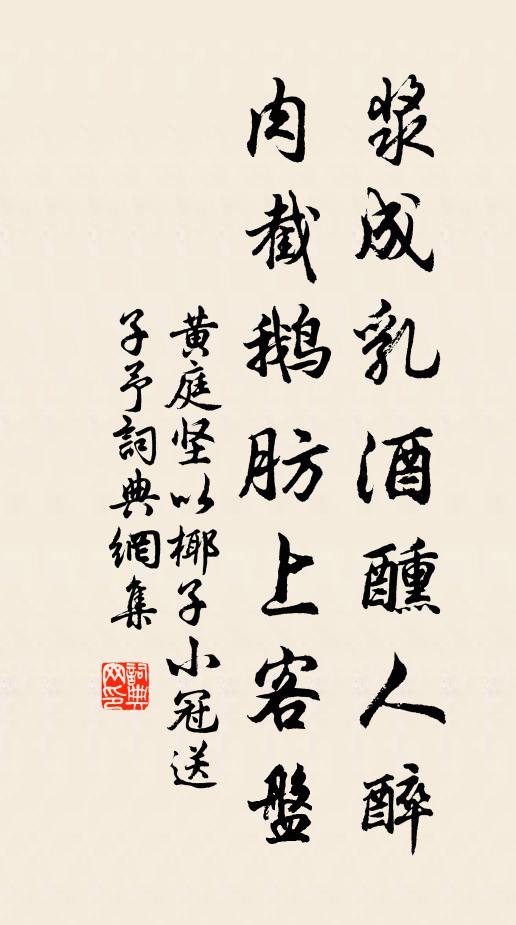 浆成乳酒醺人醉
肉截鹅肪上客盤
黄庭坚以椰子小冠送
子予詞典網集
詞典
网印